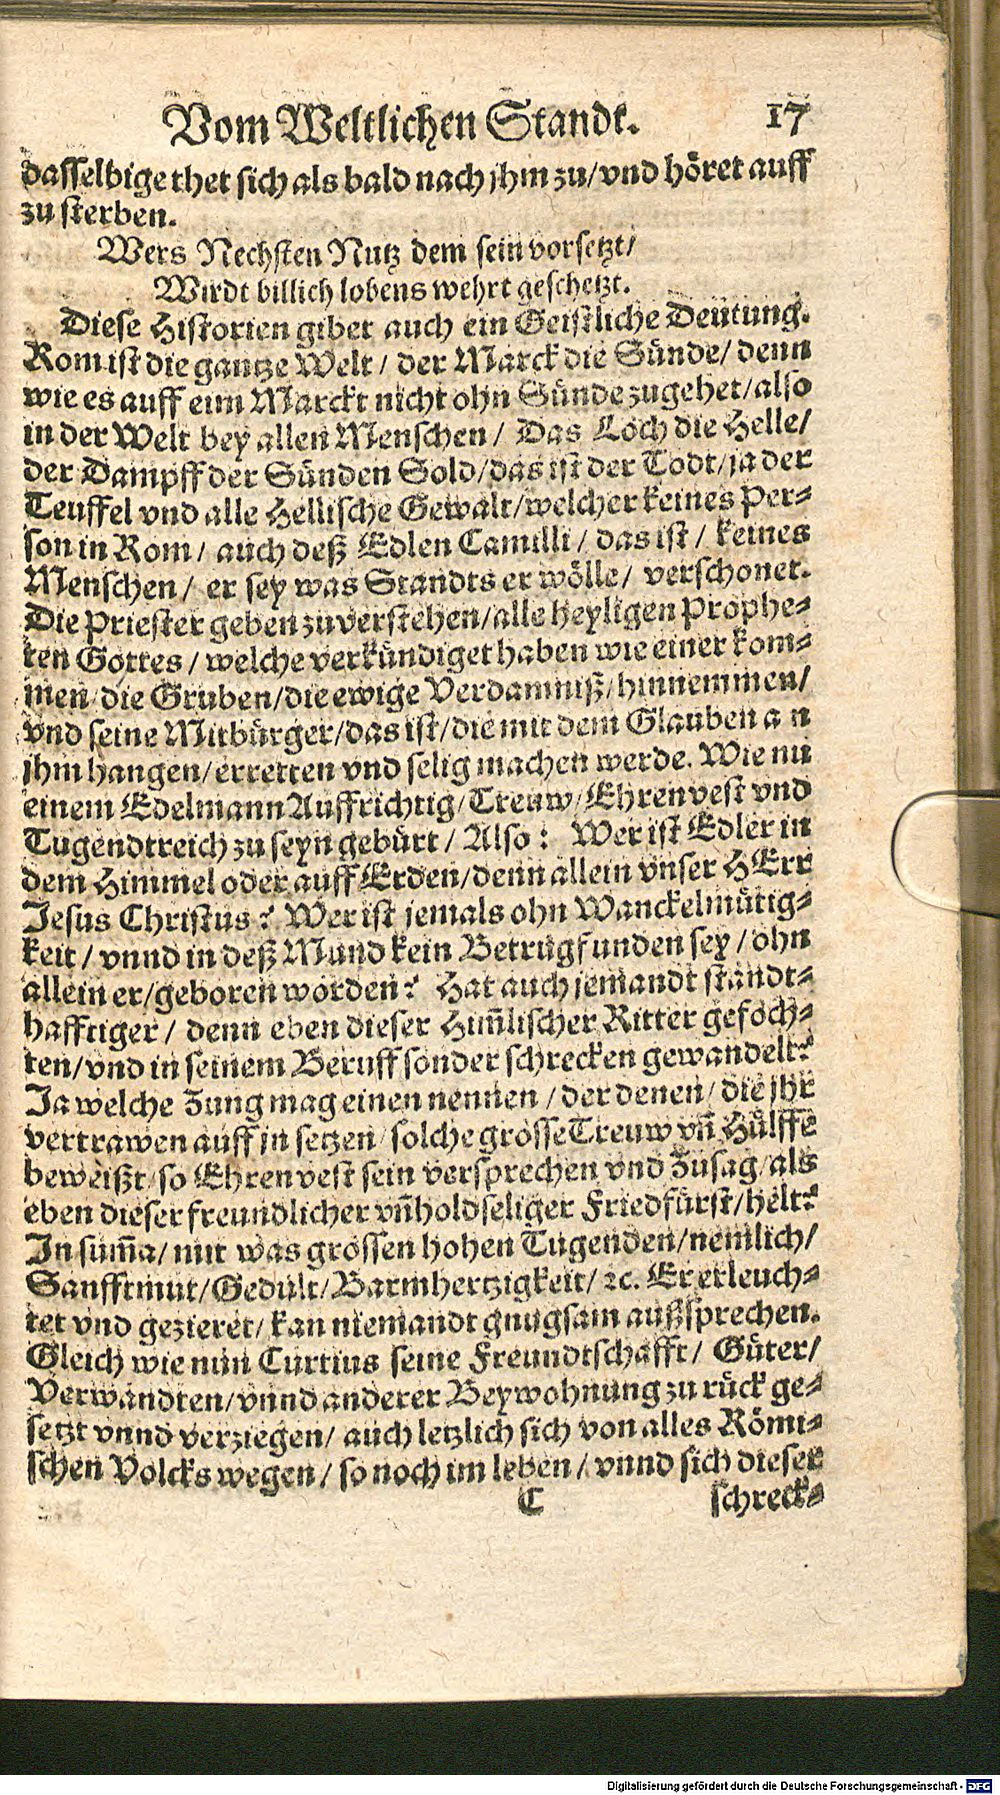 Vom Weltlichen Standt. 17
dasselbige thet sich als bald nach jhm zu/vnd höret auff
zu sterben.
Wers Nechsten Nutz dem sein vorsetzt/
Wirdt billich lobens wehrt geschetzt.
Diese Historien gibet auch ein Geistliche Deutung.
Rom ist die gantze Welt/ der Marck die Sünde/ denn
wie es auff eim Marckt nicht ohn Sünde zugehet/also
in der Welt bey allen Menschen/ Das Loch die Helle/
der Dampff der Sünden Sold/das ist der Todt/ja der
Teuffel vnd alle Hellische Gewalt/welcher keines Per-
son in Rom/ auch deß Edlen Camilli/ das ist/ keines
Menschen/ er sey was Standts er wölle/ verschonet.
Die Priester geben zuverstehen/alle heyligen Prophe-
ten Gottes/welche verkündiget haben wie einer kom-
men/die Gruben/die ewige Verdamniß/hinnemmen/
vnd seine Mitbürger/das ist/die mit dem Glauben an
jhm hangen/erretten vnd selig machen werde. Wie nu
einem Edelmann Auffrichtig/Treuw/Ehrenvest vnd
Tugendtreich zu seyn gebürt/ Also: Wer ist Edler in
dem Himmel oder auff Erden/denn allein vnser HErr
Jesus Christus? Wer ist jemals ohn Wanckelmütig-
keit/ vnnd in deß Mund kein Betrug funden sey/ohn
allein er/geboren worden? Hat auch jemandt standt-
hafftiger/ denn eben dieser Him̃lischer Ritter gefoch-
ten/vnd in seinem Beruff sonder schrecken gewandelt?
Ja welche Zung mag einen nennen/der denen/die jhr
vertrawen auff jn setzen/solche grosse Treuw vñ Hülffe
beweißt/so Ehrenvest sein versprechen vnd Zusag/als
eben dieser freundlicher vñ holdseliger Friedfürst/helt?
In sum̃a/mit was grossen hohen Tugenden/nemlich/
Sanfftmut/Gedult/Barmhertzigkeit/ ꝛc. Er erleuch-
tet vnd gezieret/kan niemandt gnugsam außsprechen.
Gleich wie nun Curtius seine Freundtschafft/ Güter/
Verwandten/vnnd anderer Beywohnung zu rück ge-
setzt vnnd verziegen/ auch letzlich sich von alles Römi-
schen Volcks wegen/ so noch im leben/ vnnd sich dieser
C schreck-
Digitalisierung gefördert durch die Deutsche Forschungsgemeinschaft - DFG